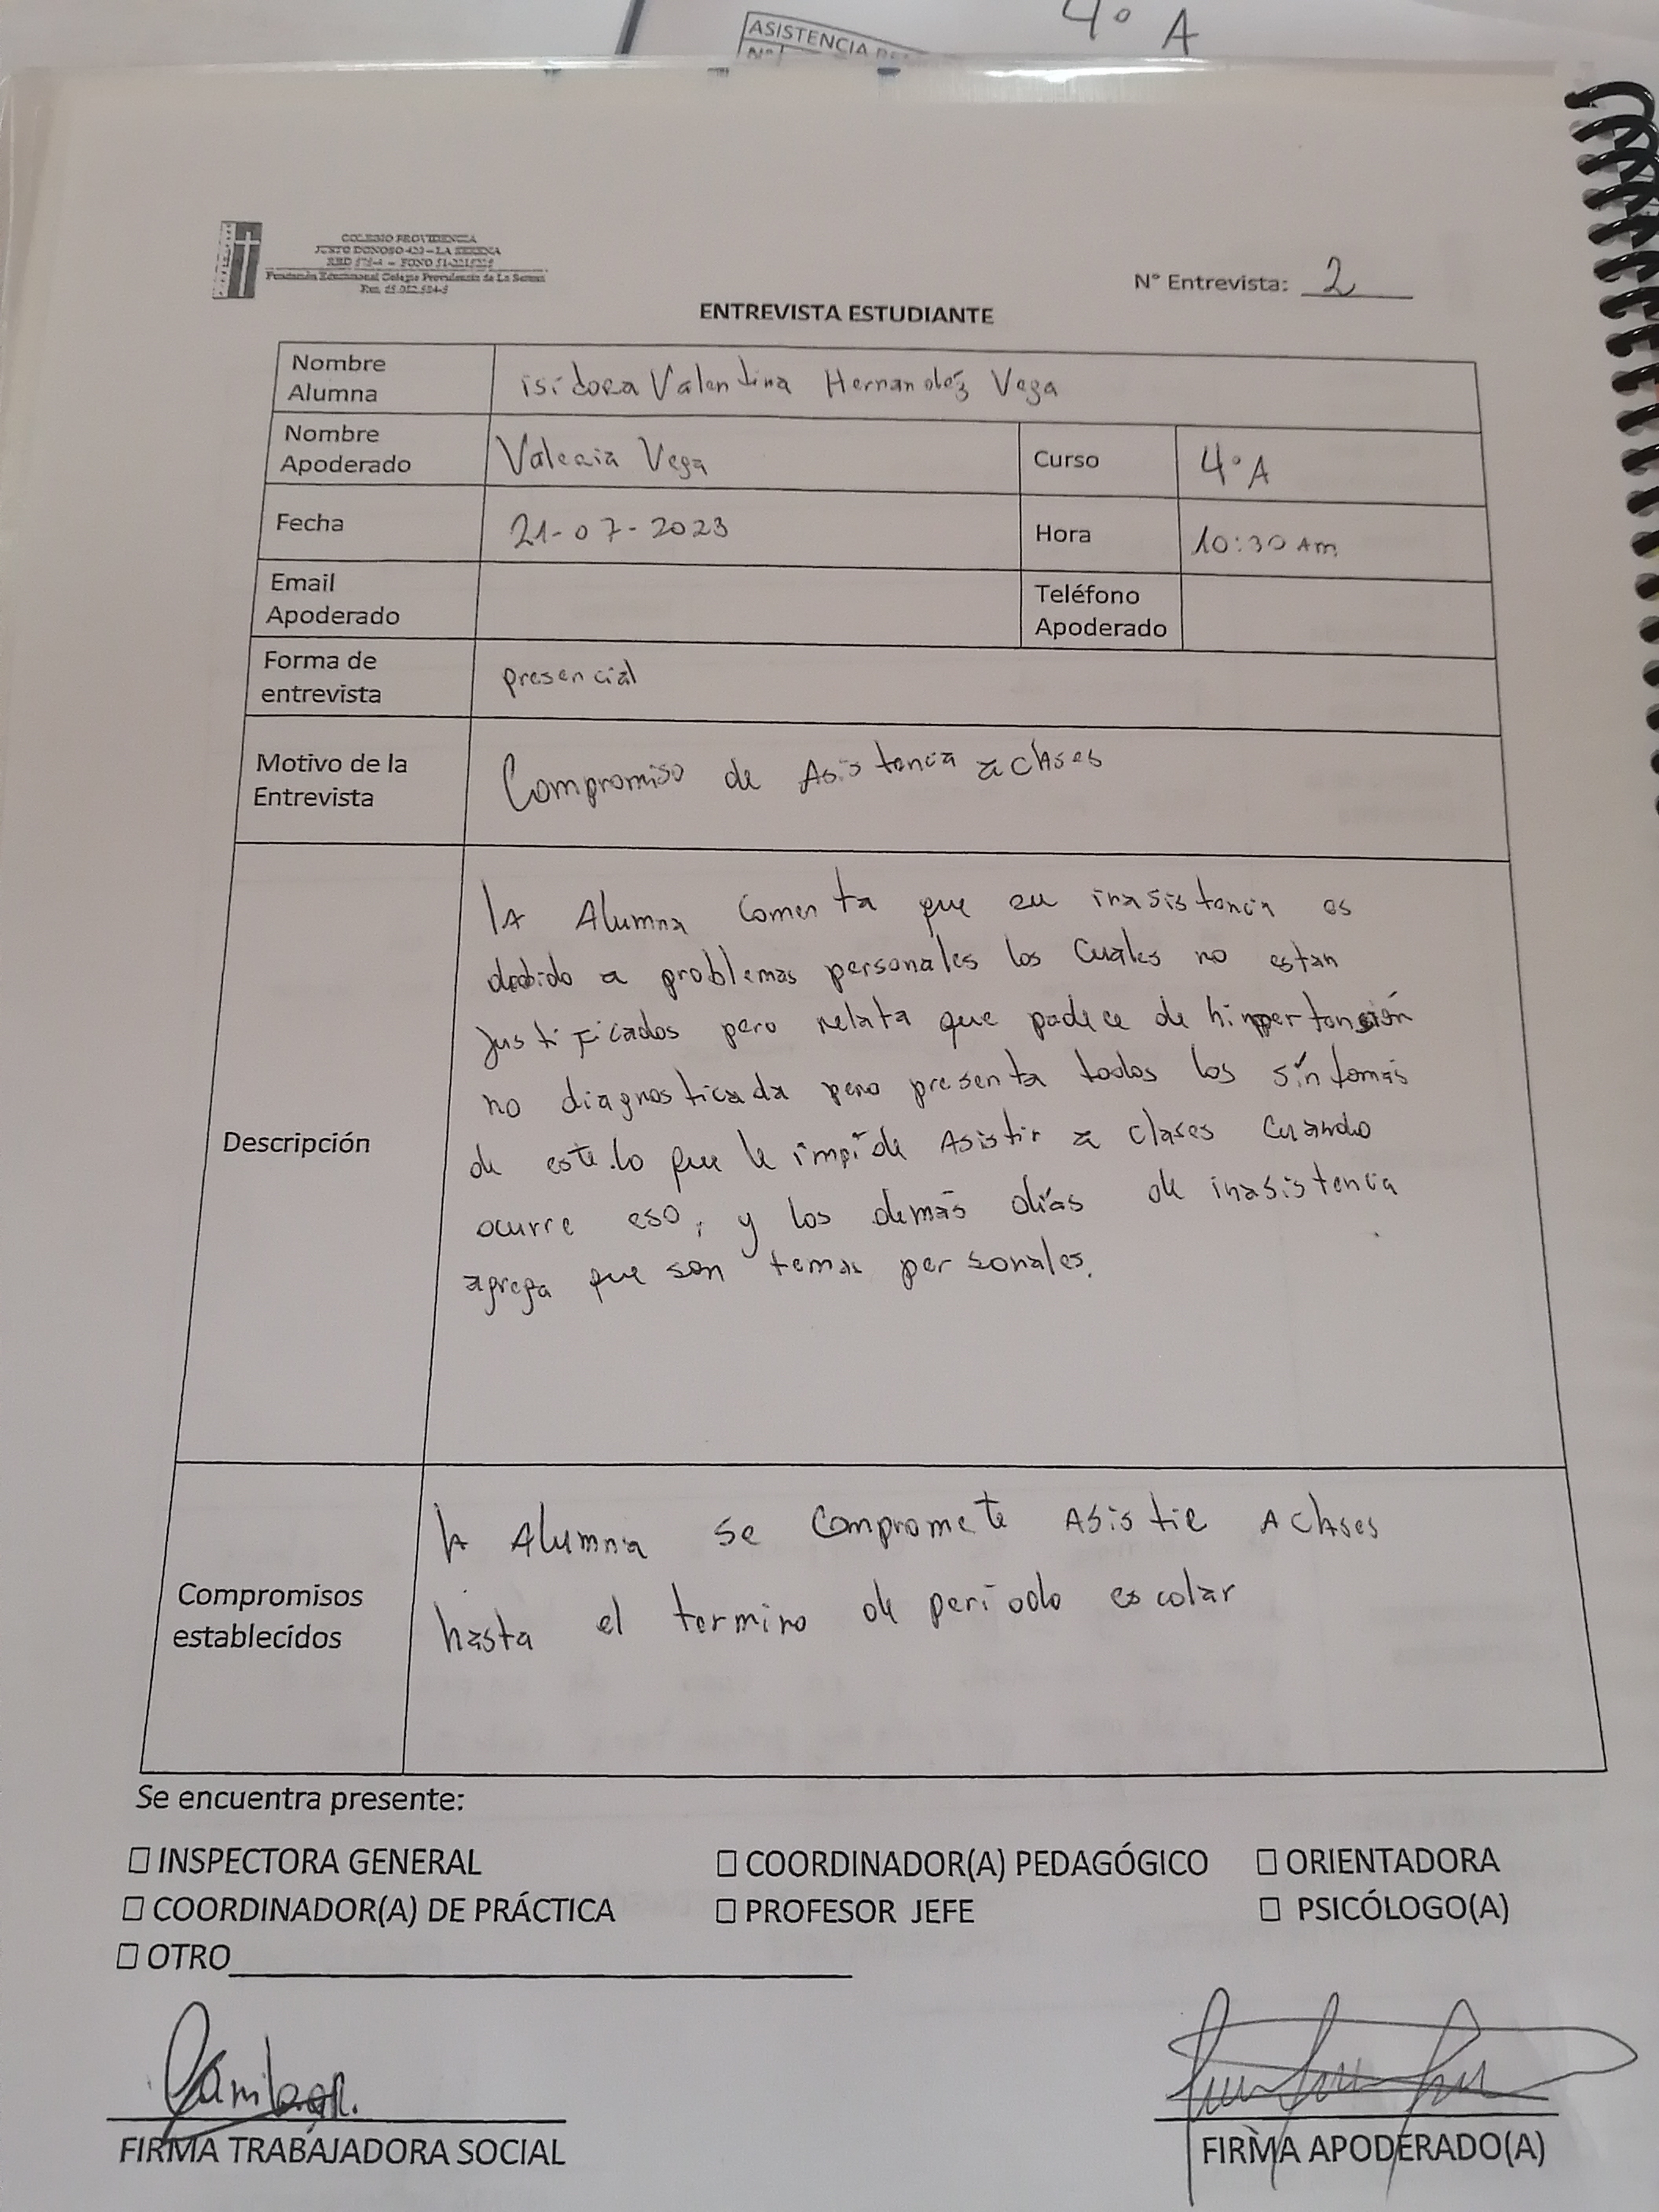 4° A
ASISTENCIA
N°
COLEGIO PROVIDENCIA
JUSTO DONOSO 420 – LA SERENA
Fundación Educacional Colegio Providencia de La Serena
N° Entrevista: 2
ENTREVISTA ESTUDIANTE
Nombre Alumna
isidora Valentina Hernandéz Vega
Nombre Apoderado
Valeria Vega
Curso
4°A
Fecha
21-07-2023
Hora
10:30 Am
Email Apoderado
Teléfono Apoderado
Forma de entrevista
presencial
Motivo de la Entrevista
Compromiso de Asistencia a clases
Descripción
la Alumna comenta que su inasistencia es
debido a problemas personales los cuales no estan
justificados pero relata que padece de himpertensión
no diagnosticada pero presenta todos los síntomas
de este.lo que le impide Asistir a clases cuando
ocurre eso, y los demás días de inasistencia
agrega que son temas personales.
Compromisos establecidos
la Alumna se compromete Asistir A clases
hasta el termino de período escolar
Se encuentra presente:
☐ INSPECTORA GENERAL ☐ COORDINADOR(A) PEDAGÓGICO ☐ ORIENTADORA
☐ COORDINADOR(A) DE PRÁCTICA ☐ PROFESOR JEFE ☐ PSICÓLOGO(A)
☐ OTRO
FIRMA TRABAJADORA SOCIAL
FIRMA APODERADO(A)